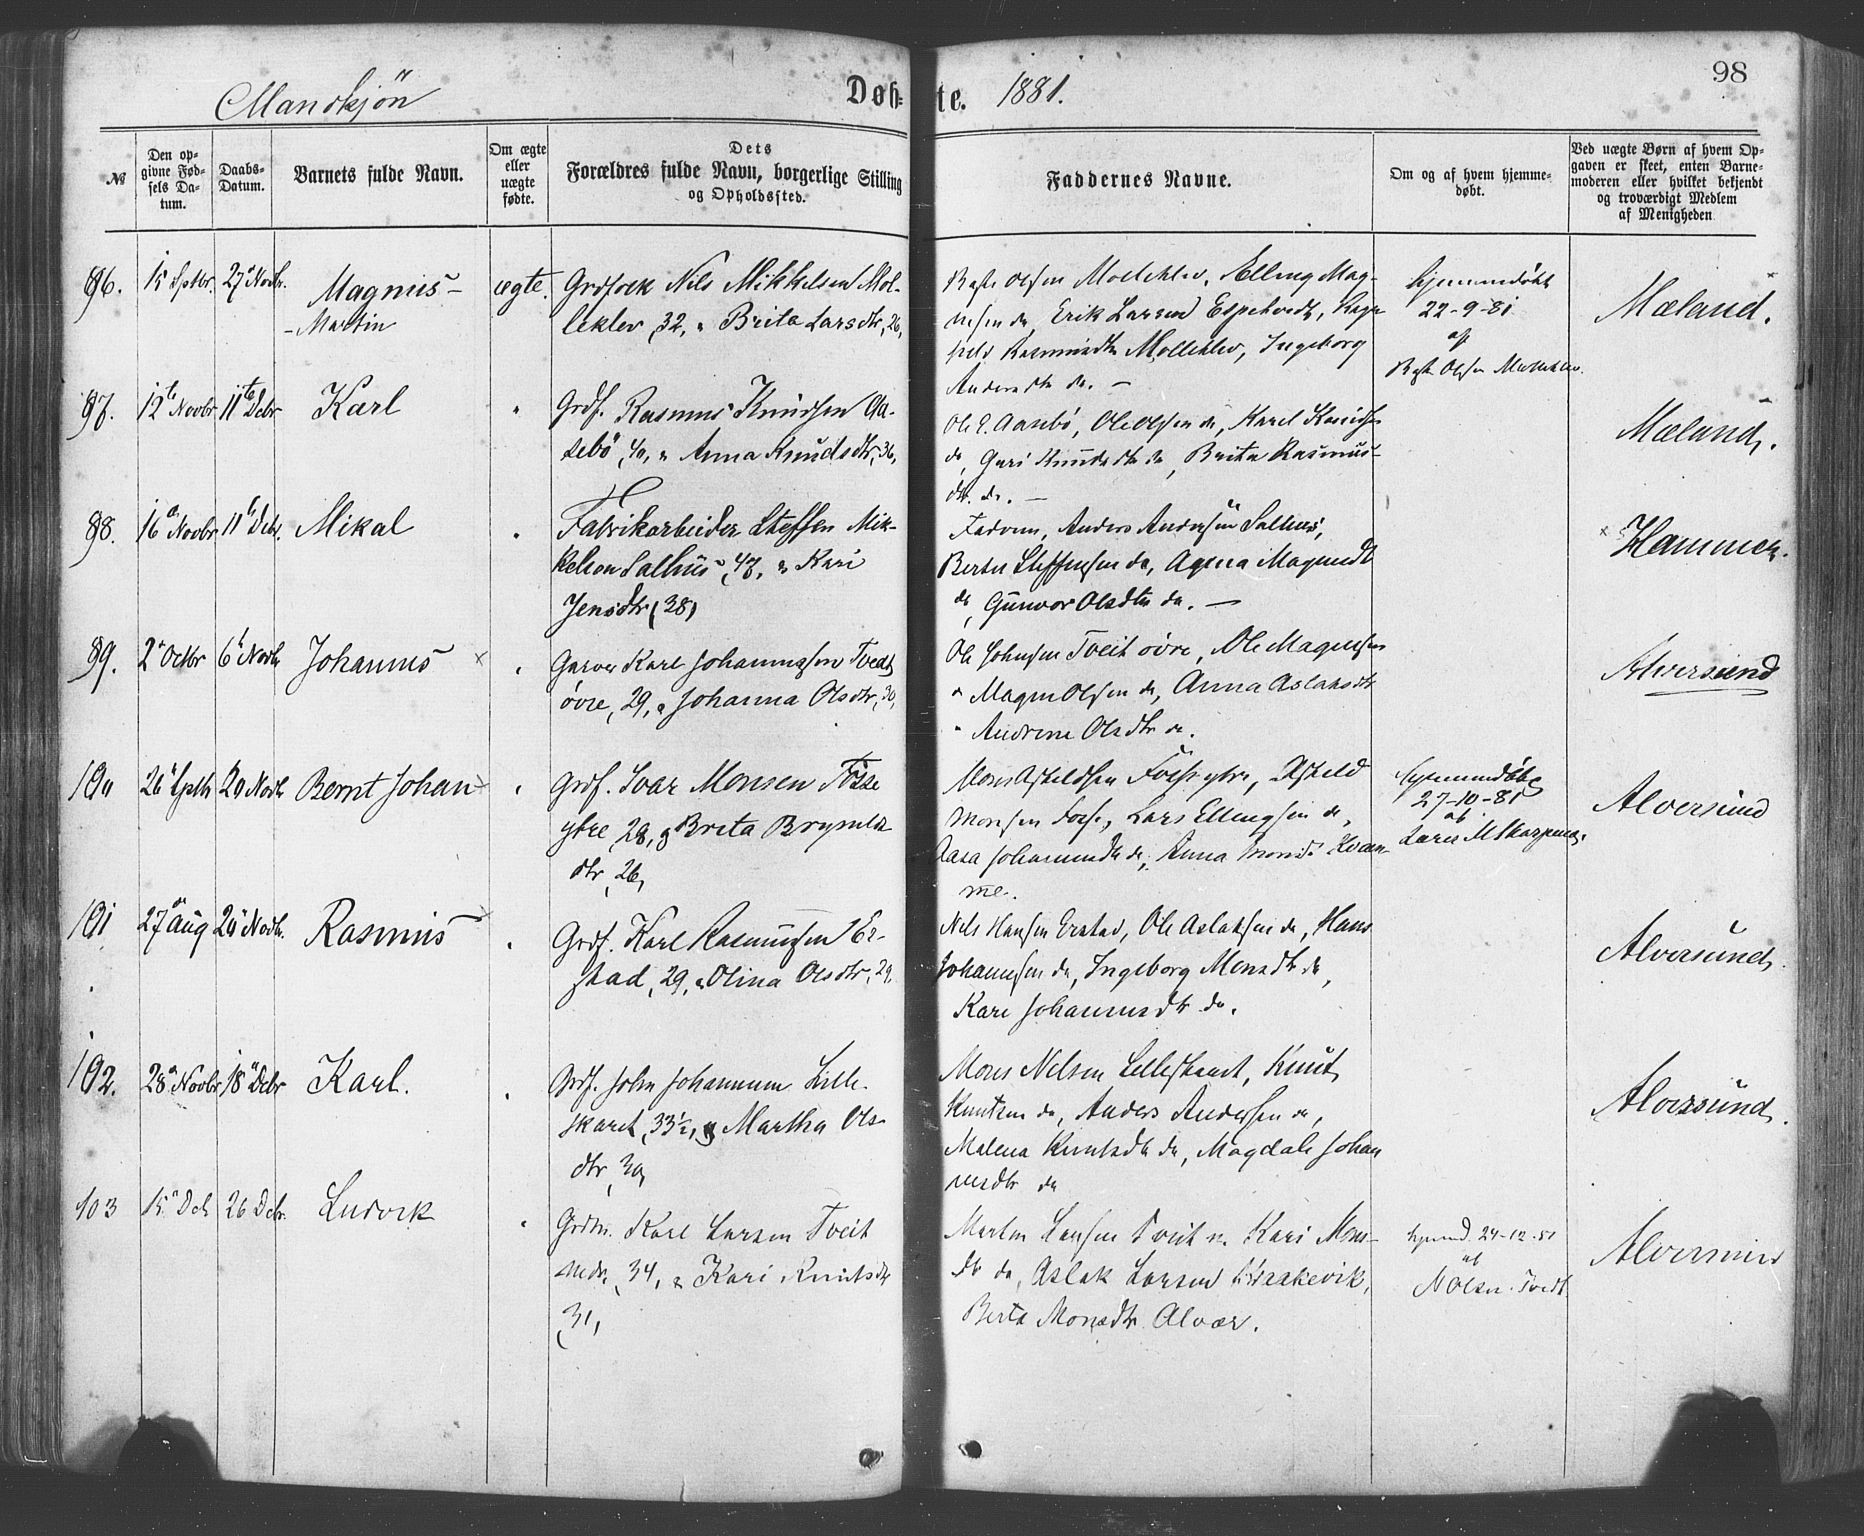 98
Mandkjön Døb- te. 1881.
№
Den op-
givne Fød-
sels Da-
tum.
Daabs-
Datum.
Barnets fulde Navn.
Om ægte
eller
uægte
fødte.
Dets
Forældres fulde Navn, borgerlige Stilling
og Opholdssted.
Faddernes Navne.
Om og af hvem hjemme-
døbt.
Ved uægte Børn af hvem Op-
gaven er skeet, enten Barne-
moderen eller hvilket bekjendt
og troværdigt Medlem
af Menigheden
96.
15 Septbr.
27 Novbr.
Magnus-
-Martin
ægte.
Nils Mikkelsen Mol-
leklev, 32, Brita Larsdtr, 26,
Olsen Molleklev, Elling Mag-
nesen do, Erik Larsen Espetvedt,
Rasmusdtr Molleklev, Ingeborg
Andersdtr do. —
hjemmedøbt
22-9-81
af
Olsen Molleklev.
Mæland.
97.
12te Novbr
11te Debr
Karl
"
Grdf. Rasmus Knudsen Aa-
sebö, 40, & Anna Knudsdtr, 36,
Ole E. Aasebö, Ole Olsen do, Karl Knudsen
do, Guri Knudsdtr do, Brita Rasmus-
dtr. do. —
Mæland.
98.
16 Novbr
11 Debr.
Mikal
"
Fabrikarbeider Steffen Mik-
kelsen Salhus, 47, & Kari
Jensdtr (38)
Faderen, Anders Andersen Salhus,
Berter Steffensen do, Agnea Magnusdtr
do, Gunvor Olsdtr do. —
× Hammer.
99.
2 Octbr
6 Novbr
Johannes ×
"
Garver Karl Johannessen Tvedt
övre, 29, & Johanna Olsdtr, 30,
Ole Johnsen Tveit övre, Ole Magnesen
" Magne Olsen do, Anna Aslaksdtr
" Andrine Olsdtr do.
Alversund
100
26 Septbr
20 Novbr
Bernt Johan ×
"
Grdf. Ivar Monsen Fosse
ytre, 28, & Brita Brynilds
dtr, 26,
Mons Askeldsen Fosse ytre, Askeld
Monsen Fosse, Lars Ellingsen do,
Aasa Johannesdtr do, Anna Monsd. Kvam-
me.
hjemmedøbt
27-10-81
af
Alversund
101
27 Aug
20 Novbr.
Rasmus ×
"
Grdf. Karl Rasmussen Er-
stad, 29, & Olina Olsdtr, 29.
Nils Hansen Erstad, Ole Aslaksen do, Hans
Johannesen do, Ingeborg Monsdtr do,
Kari Johannesdtr do.
Alversund
102.
28 Novbr
18 Debr
Karl.
"
Grdf. John Johannesen Lille-
skaret, 33½, & Martha Ols-
dtr, 30,
Mons Nelsen Lilleskaret, Knut
Knutsen do, Anders Andersen do,
Malena Knutsdtr do, Magdale Johan
nesdtr do
Alversund.
103
15 Deb
26 Debr.
Ludvik
"
Grdm. Karl Larsen Tveit
nedr, 34, & Kari Knutsdtr
31,
Martin Larsen Tveit n. Kari Mons-
dtr do, Aslak Larsen Isdal
Berta Monsdtr Alvær.
hjemd. 24-12-81
af
N Olsen Tvedt
Alversund